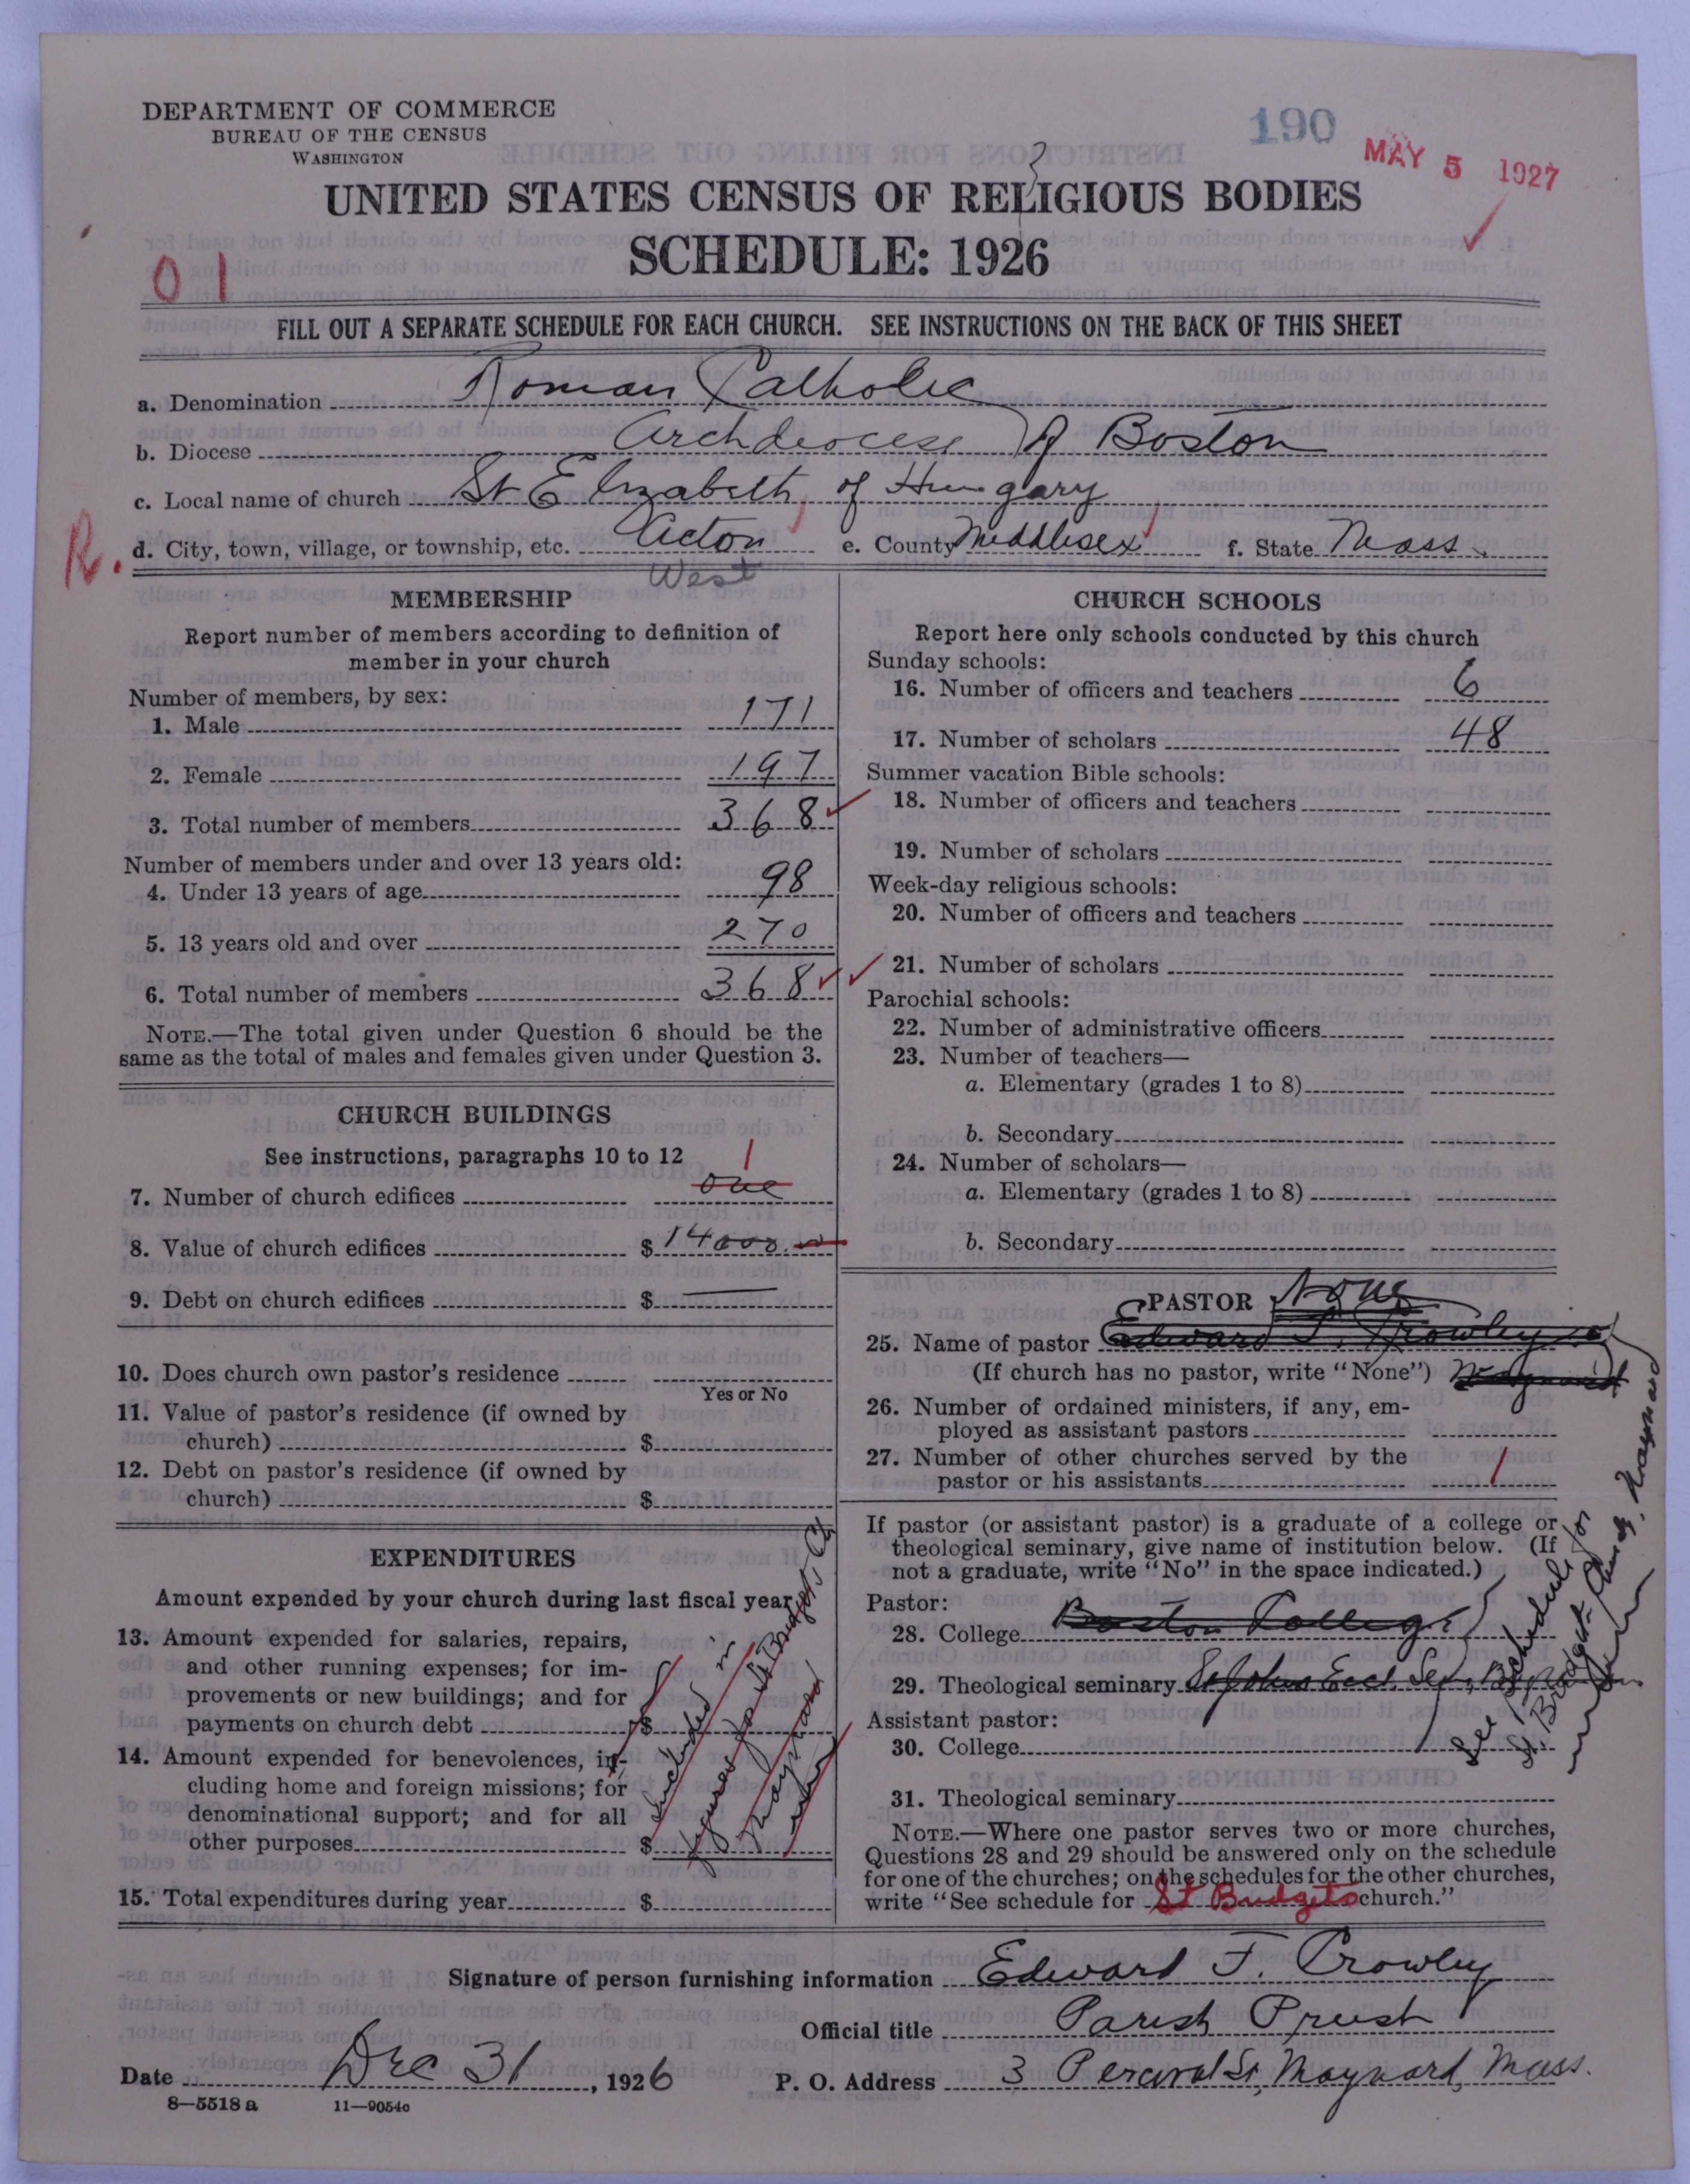 DEPARTMENT OF COMMERCE
BUREAU OF THE CENSUS
WASHINGTON
190
MAY 5 1927
UNITED STATES CENSUS OF RELIGIOUS BODIES
SCHEDULE: 1926
01
FILL OUT A SEPARATE SCHEDULE FOR EACH CHURCH. SEE INSTRUCTIONS ON THE BACK OF THIS SHEET
a. Denomination Roman Catholic
b. Diocese Archdiocese of Boston
c. Local name of church St Elizabeth of Hungary
R. d. City, town, village, or township, etc. Acton e. County Middlesex f. State Mass.
West
MEMBERSHIP
Report number of members according to definition of
member in your church
Number of members, by sex:
1. Male 171
2. Female 197
3. Total number of members 368
Number of members under and over 13 years old:
4. Under 13 years of age 98
5. 13 years old and over 270
6. Total number of members 368
NOTE.—The total given under Question 6 should be the
same as the total of males and females given under Question 3.
CHURCH BUILDINGS
See instructions, paragraphs 10 to 12
1
7. Number of church edifices one
8. Value of church edifices $ 14000.00
9. Debt on church edifices $ —
10. Does church own pastor's residence
Yes or No
11. Value of pastor's residence (if owned by
church) $
12. Debt on pastor's residence (if owned by
church) $
EXPENDITURES
Amount expended by your church during last fiscal year
13. Amount expended for salaries, repairs,
and other running expenses; for im-
provements or new buildings; and for
payments on church debt $
14. Amount expended for benevolences, in-
cluding home and foreign missions; for
denominational support; and for all
other purposes $
15. Total expenditures during year $
included in
figures for St Bridget's Ch
Maynard
CHURCH SCHOOLS
Report here only schools conducted by this church
Sunday schools:
16. Number of officers and teachers 6
17. Number of scholars 48
Summer vacation Bible schools:
18. Number of officers and teachers
19. Number of scholars
Week-day religious schools:
20. Number of officers and teachers
21. Number of scholars
Parochial schools:
22. Number of administrative officers
23. Number of teachers—
a. Elementary (grades 1 to 8)
b. Secondary
24. Number of scholars—
a. Elementary (grades 1 to 8)
b. Secondary
PASTOR None
25. Name of pastor Edward F. Crowley of
(If church has no pastor, write "None") Maynard
26. Number of ordained ministers, if any, em-
ployed as assistant pastors
27. Number of other churches served by the
pastor or his assistants 1
If pastor (or assistant pastor) is a graduate of a college or
theological seminary, give name of institution below. (If
not a graduate, write "No" in the space indicated.)
Pastor:
28. College Boston College
29. Theological seminary St Johns Eccl. Sem,
Assistant pastor:
30. College
31. Theological seminary
See Schedule for
St. Bridget Maynard
NOTE.—Where one pastor serves two or more churches,
Questions 28 and 29 should be answered only on the schedule
for one of the churches; on the schedules for the other churches,
write "See schedule for St Bridgets church."
Signature of person furnishing information Edward F. Crowley
Official title Parish Priest
Date Dec 31, 1926 P. O. Address 3 Percival St, Maynard, Mass.
8—5518 a 11—9054c